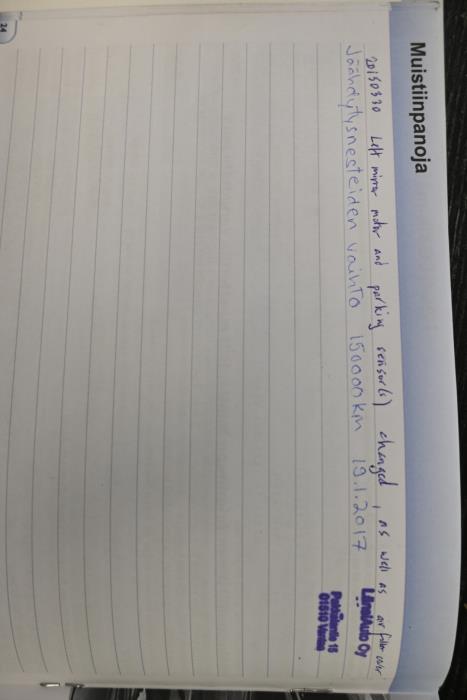 Muistiinpanoja
20150330 Left mirror motor and parking sensor(s) changed, as well as air filter cover
Jäähdytysnesteiden vaihto 150000km 19.1.2017
LänsiAuto Oy
01510 Vantaa
24